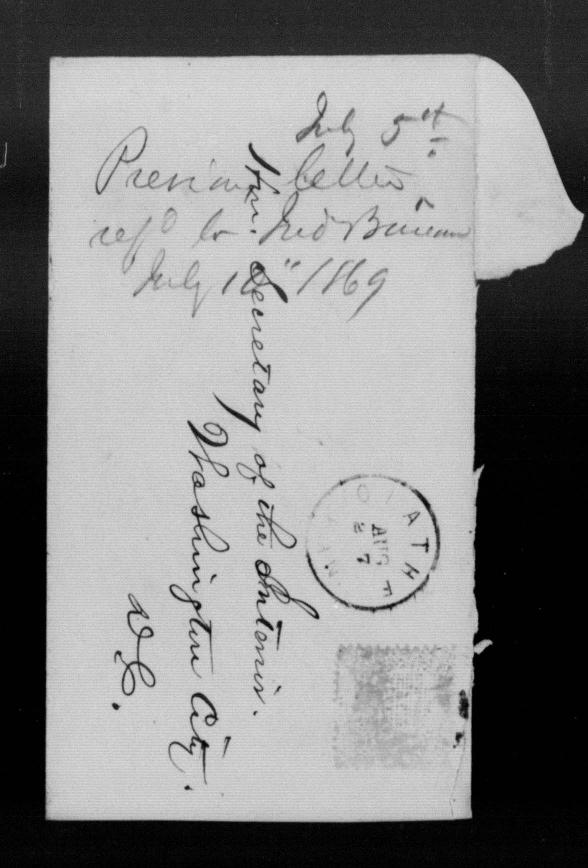 July 5th
Previous letter
refd to Ind Bureau
July 10" 1869
Hon. Secretary of the Interior.
Washington City.
D.C.
AUG
27